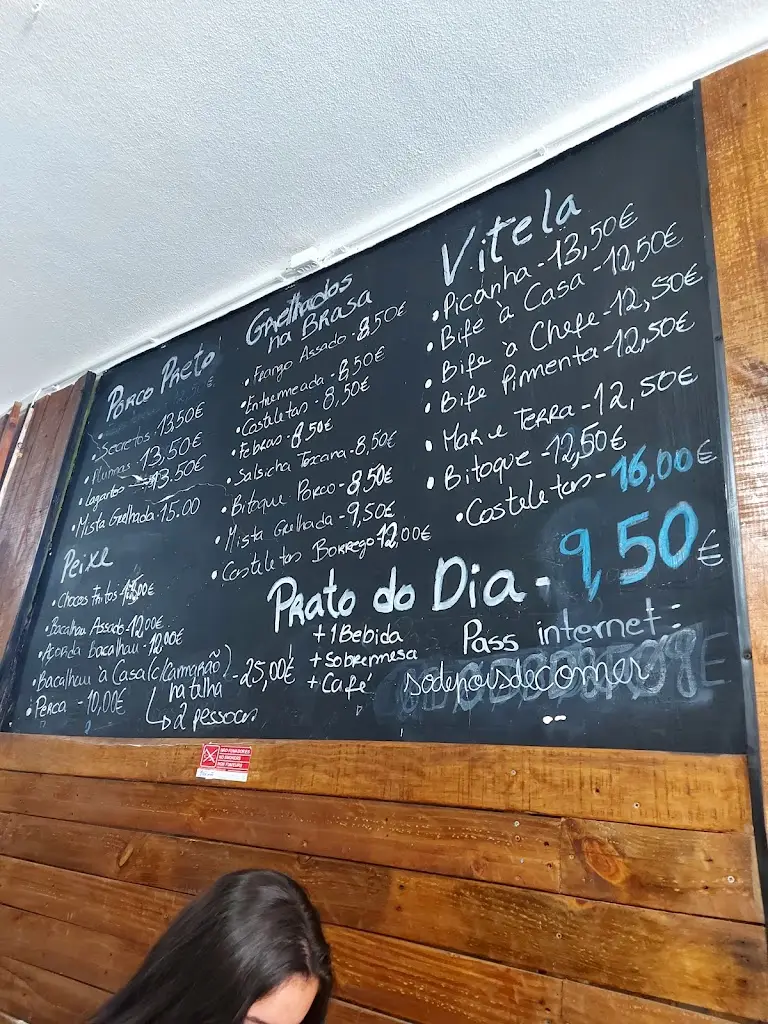 Porco Preto
• Secretos - 13,50€
• Plumas - 13,50€
• Lagartos - 13.50€
• Mista Grelhada - 15.00
Peixe
• Chocos Fritos
• Bacalhau Assado - 12,00€
• Açorda bacalhau - 12,00€
• Bacalhau à Casa (c/camarão) - 25,00€
na telha
↳ 2 pessoas
• Perca - 10,00€
Grelhados
na Brasa
• Frango Assado - 8,50€
• Entremeada - 8,50€
• Costeletas - 8,50€
• Febras - 8,50€
• Salsicha Toscana - 8,50€
• Bitoque Porco - 8,50€
• Mista Grelhada - 9,50€
• Costeletas Borrego 12,00€
Vitela
• Picanha - 13,50€
• Bife à Casa - 12,50€
• Bife à Chefe - 12,50€
• Bife Pimenta - 12,50€
• Mar e Terra - 12,50€
• Bitoque - 12,50€
• Costeletas - 16,00€
Prato do Dia - 9,50€
+ 1 Bebida
+ Sobremesa
+ Café
Pass internet:
sodepoisdecomer
NÃO FUMADORES
NO SMOKING